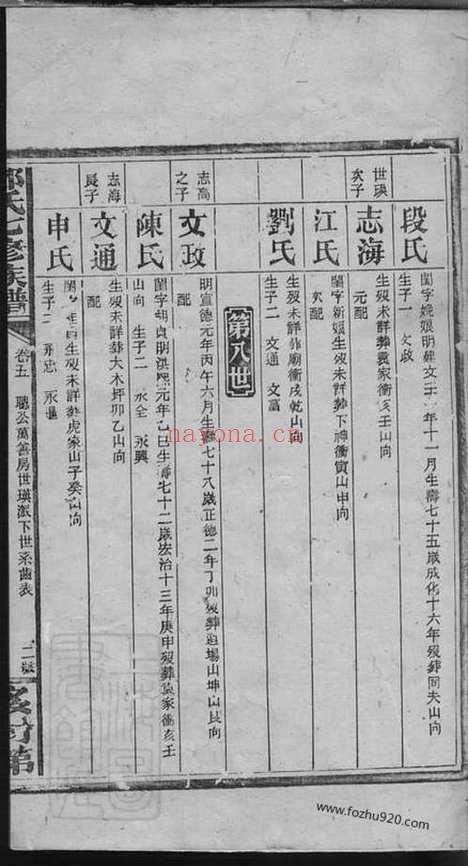 段氏
閨字娩娘明建文三年十一月生壽七十五歲成化十六年歿葬同夫山向
生子一 文政
世瑛次子
志海
生歿未詳葬黃家衝亥壬山向
元配
江氏
閨字新娘生歿未詳葬下神衝寅山申向
次配
劉氏
生歿未詳葬廟衝戌乾山向
生子二 文通 文富
第八世
志高之子
文政
明宣德元年丙午六月生壽七十八歲正德二年丁卯歿葬 場山坤山艮向
配
陳氏
閨字 貞明洪熙元年乙巳生壽七十二歲宏治十三年庚申歿葬黃家衝亥壬
山向 生子二 永全 永興
志海長子
文通
生歿未詳葬大木坪卯乙山向
配
申氏
閨 生歿未詳葬虎象山子癸山向
生子二 永忠 永
鄧氏七修族譜
卷五 聰公萬善房世瑛派下世系齒表
www.fozhu920.com
nayona.cn